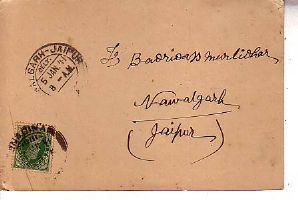 NAWALGARH-JAIPUR
5 JAN. 41
8 A.M.
To Badridass Murlidhar
Nawalgarh
(Jaipur)